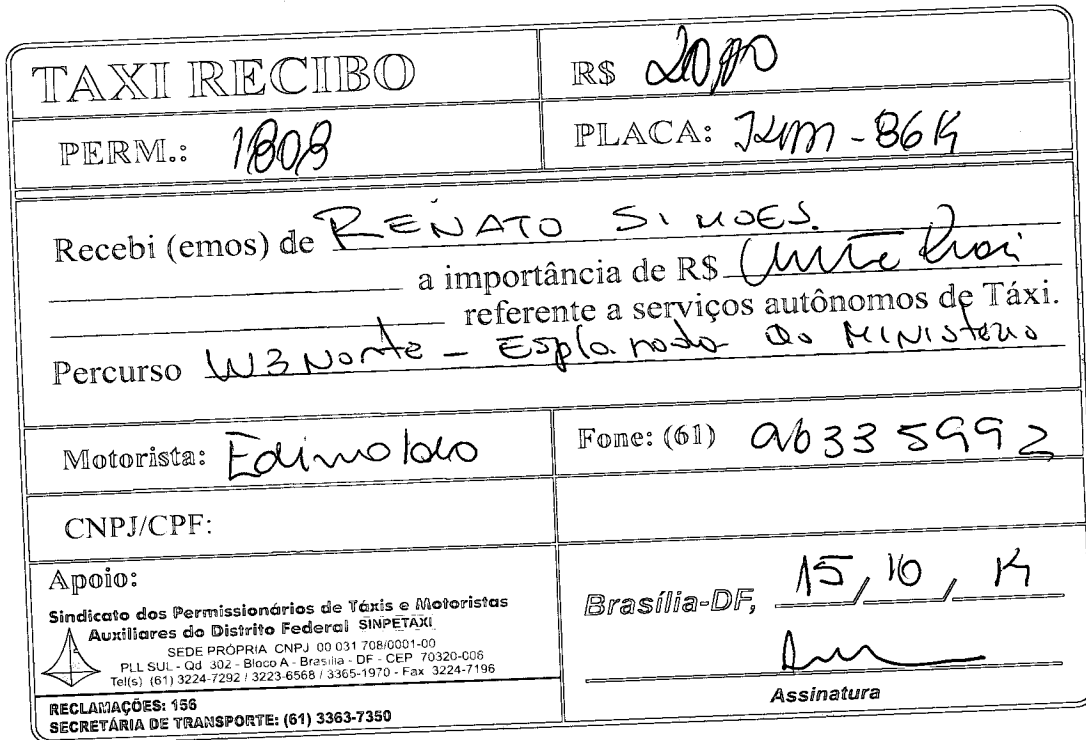 TAXI RECIBO
R$ 20,00
PERM.: 1808
PLACA:
Recebi (emos) de RENATO SIMOES
a importância de R$ Vinte Reais
referente a serviços autônomos de Táxi.
Percurso W3 Norte - Esplanada do MINISTÉRIO
Motorista: Edinaldo
Fone: (61) 96335992
CNPJ/CPF:
Apoio:
Sindicato dos Permissionários de Táxis e Motoristas
Auxiliares do Distrito Federal SINPETAXI
SEDE PRÓPRIA CNPJ 00 031 708/0001-00
PLL SUL - Qd 302 - Bloco A - Brasília - DF - CEP 70320-006
Tel(s) (61) 3224-7292 / 3223-6568 / 3365-1970 - Fax 3224-7196
RECLAMAÇÕES: 156
SECRETÁRIA DE TRANSPORTE: (61) 3363-7350
Brasília-DF, 15/10/14
Assinatura